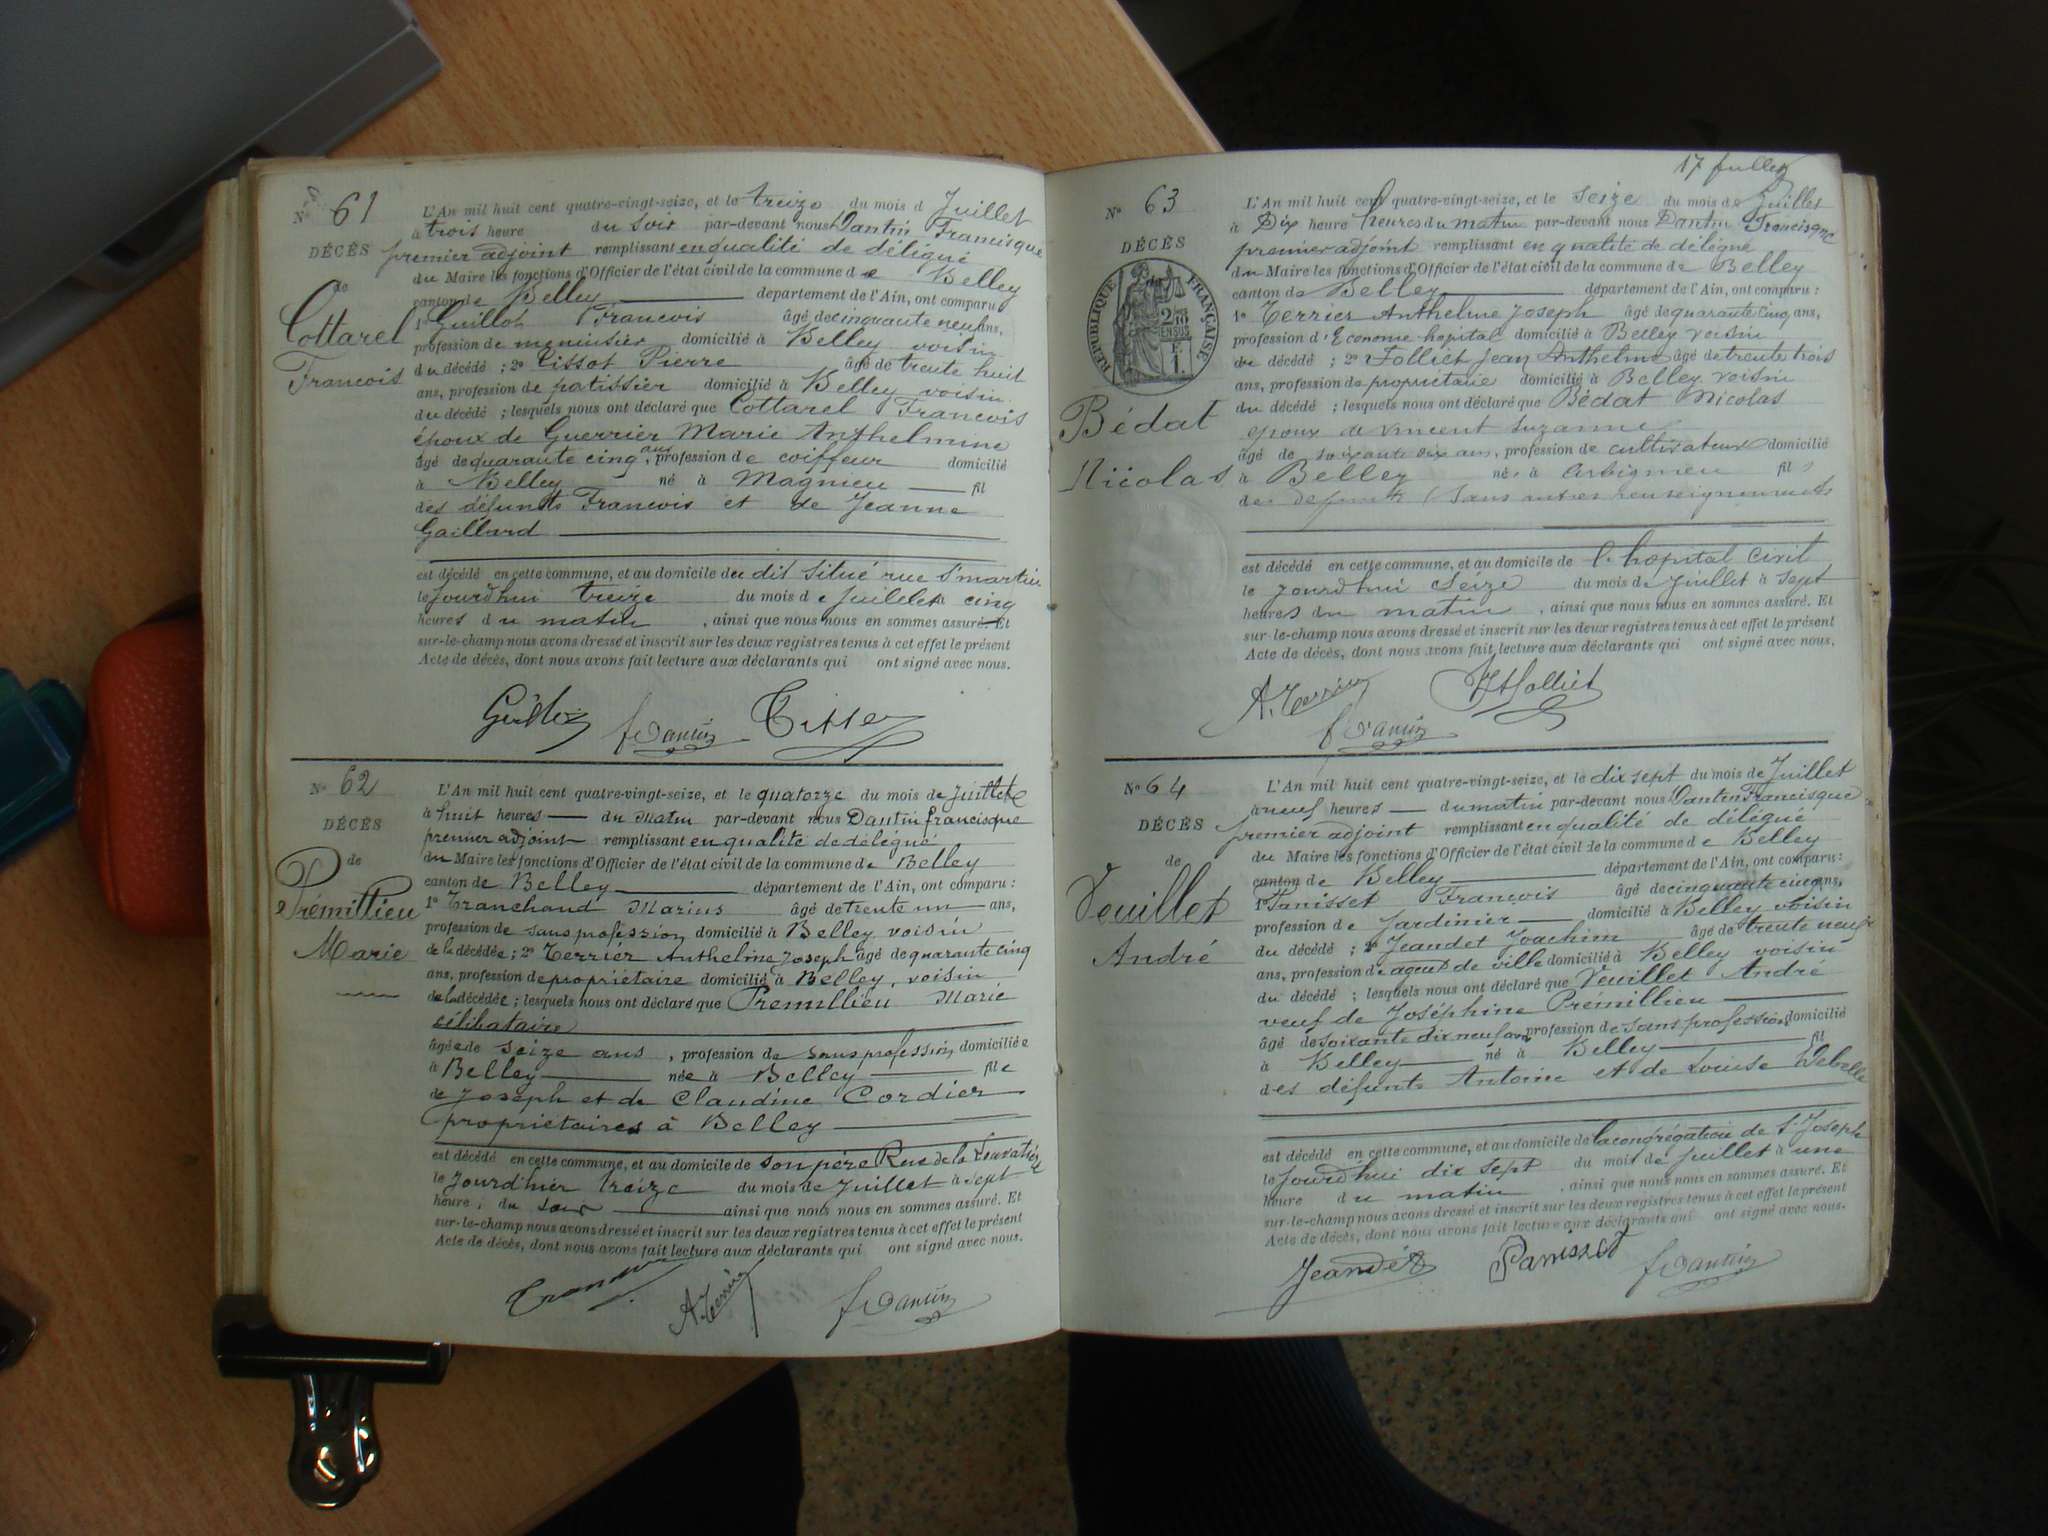 N° 61
DÉCÈS
de
Cottarel
Francois
L'An mil huit cent quatre-vingt-seize, et le treize du mois d Juillet
à trois heure du soir par-devant nous Dantin Francisque
premier adjoint remplissant en qualité de délégué
du Maire les fonctions d'Officier de l'état civil de la commune de Belley
canton de Belley département de l'Ain, ont comparu
1° Guillot Francois âgé de cinquante neuf ans,
profession de menuisier domicilié à Belley voisin
du décédé ; 2° Tissot Pierre âgé de trente huit
ans, profession de patissier domicilié à Belley voisin
du décédé ; lesquels nous ont déclaré que Cottarel Francois
époux de Guerrier Marie Anthelmine
âgé de quarante cinq ans, profession de coiffeur domicilié
à Belley né à Magnieu fil
des défunts Francois et de Jeanne
Gaillard
est décédé en cette commune, et au domicile du dit situé rue St martin
le jourd'hui treize du mois de juillet à cinq
heures du matin, ainsi que nous nous en sommes assuré. Et
sur-le-champ nous avons dressé et inscrit sur les deux registres tenus à cet effet le présent
Acte de décès, dont nous avons fait lecture aux déclarants qui ont signé avec nous.
Guillot fDantin Tissot
N° 62
DÉCÈS
de
Prémillieu
Marie
L'An mil huit cent quatre-vingt-seize, et le quatorze du mois de Juillet
à huit heures du matin par-devant nous Dantin francisque
premier adjoint remplissant en qualité de délégué
du Maire les fonctions d'Officier de l'état civil de la commune de Belley
canton de Belley département de l'Ain, ont comparu :
1° Tranchand Marius âgé de trente un ans,
profession de sans profession domicilié à Belley voisin
de la décédée ; 2° Terrier Anthelme Joseph âgé de quarante cinq
ans, profession de propriétaire domicilié à Belley, voisin
de la décédée ; lesquels nous ont déclaré que Prémillieu Marie
célibataire
âgée de seize ans, profession de sans profession domiciliée
à Belley née à Belley file
de Joseph et de Claudine Cordier
propriétaires à Belley
est décédé en cette commune, et au domicile de son père Rue de la
le jourd'hier treize du mois de juillet à sept
heure, du soir ainsi que nous nous en sommes assuré. Et
sur-le-champ nous avons dressé et inscrit sur les deux registres tenus à cet effet le présent
Acte de décès, dont nous avons fait lecture aux déclarants qui ont signé avec nous.
A. Terrier fDantin
17 juillet
N° 63
DÉCÈS
RÉPUBLIQUE FRANÇAISE
Bédat
Nicolas
L'An mil huit cent quatre-vingt-seize, et le seize du mois de Juillet
à Dix heure heures du matin par-devant nous Dantin Francisque
premier adjoint remplissant en qualité de délégué
du Maire les fonctions d'Officier de l'état civil de la commune de Belley
canton de Belley département de l'Ain, ont comparu :
1° Terrier Anthelme Joseph âgé de quarante cinq ans,
profession d'Econome hopital domicilié à Belley voisin
du décédé ; 2° Folliet Jean Anthelme âgé de trente trois
ans, profession de propriétaire domicilié à Belley voisin
du décédé ; lesquels nous ont déclaré que Bédat Nicolas
epoux de Vincent Suzanne
âgé de soixante dix ans, profession de cultivateur domicilié
à Belley né à Arbignieu fil s
des defunts (Sans autres renseignements
est décédé en cette commune, et au domicile de l'hopital civil
le jourd'hui seize du mois de juillet à sept
heures du matin, ainsi que nous nous en sommes assuré. Et
sur-le-champ nous avons dressé et inscrit sur les deux registres tenus à cet effet le présent
Acte de décès, dont nous avons fait lecture aux déclarants qui ont signé avec nous.
A. Terrier Folliet
fDantin
N° 64
DÉCÈS
de
Veuillet
André
L'An mil huit cent quatre-vingt-seize, et le dix sept du mois de Juillet
à neuf heures du matin par-devant nous Dantin Francisque
premier adjoint remplissant en qualité de délégué
du Maire les fonctions d'Officier de l'état civil de la commune de Belley
canton de Belley département de l'Ain, ont comparu :
1° Panisset Francois âgé de cinquante cinq ans,
profession de Jardinier domicilié à Belley voisin
du décédé ; 2° Jeandet Joachim âgé de trente neuf
ans, profession d'agent de ville domicilié à Belley voisin
du décédé ; lesquels nous ont déclaré que Veuillet André
veuf de Joséphine Prémillieu
âgé de soixante dix neuf ans, profession de sans profession domicilié
à Belley né à Belley fil
des défunts Antoine et de Louise
est décédé en cette commune, et au domicile de la congrégation de St Joseph
le jourd'hui dix sept du mois de juillet à une
heure du matin, ainsi que nous nous en sommes assuré. Et
sur-le-champ nous avons dressé et inscrit sur les deux registres tenus à cet effet le présent
Acte de décès, dont nous avons fait lecture aux déclarants qui ont signé avec nous.
Jeandet Panisset fDantin